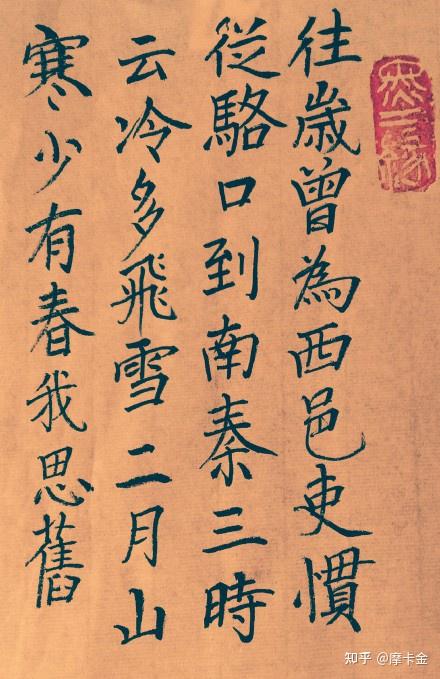 往歲曾為西邑吏慣
從駱口到南秦三時
云冷多飛雪二月山
寒少有春我思舊
知乎 @摩卡金